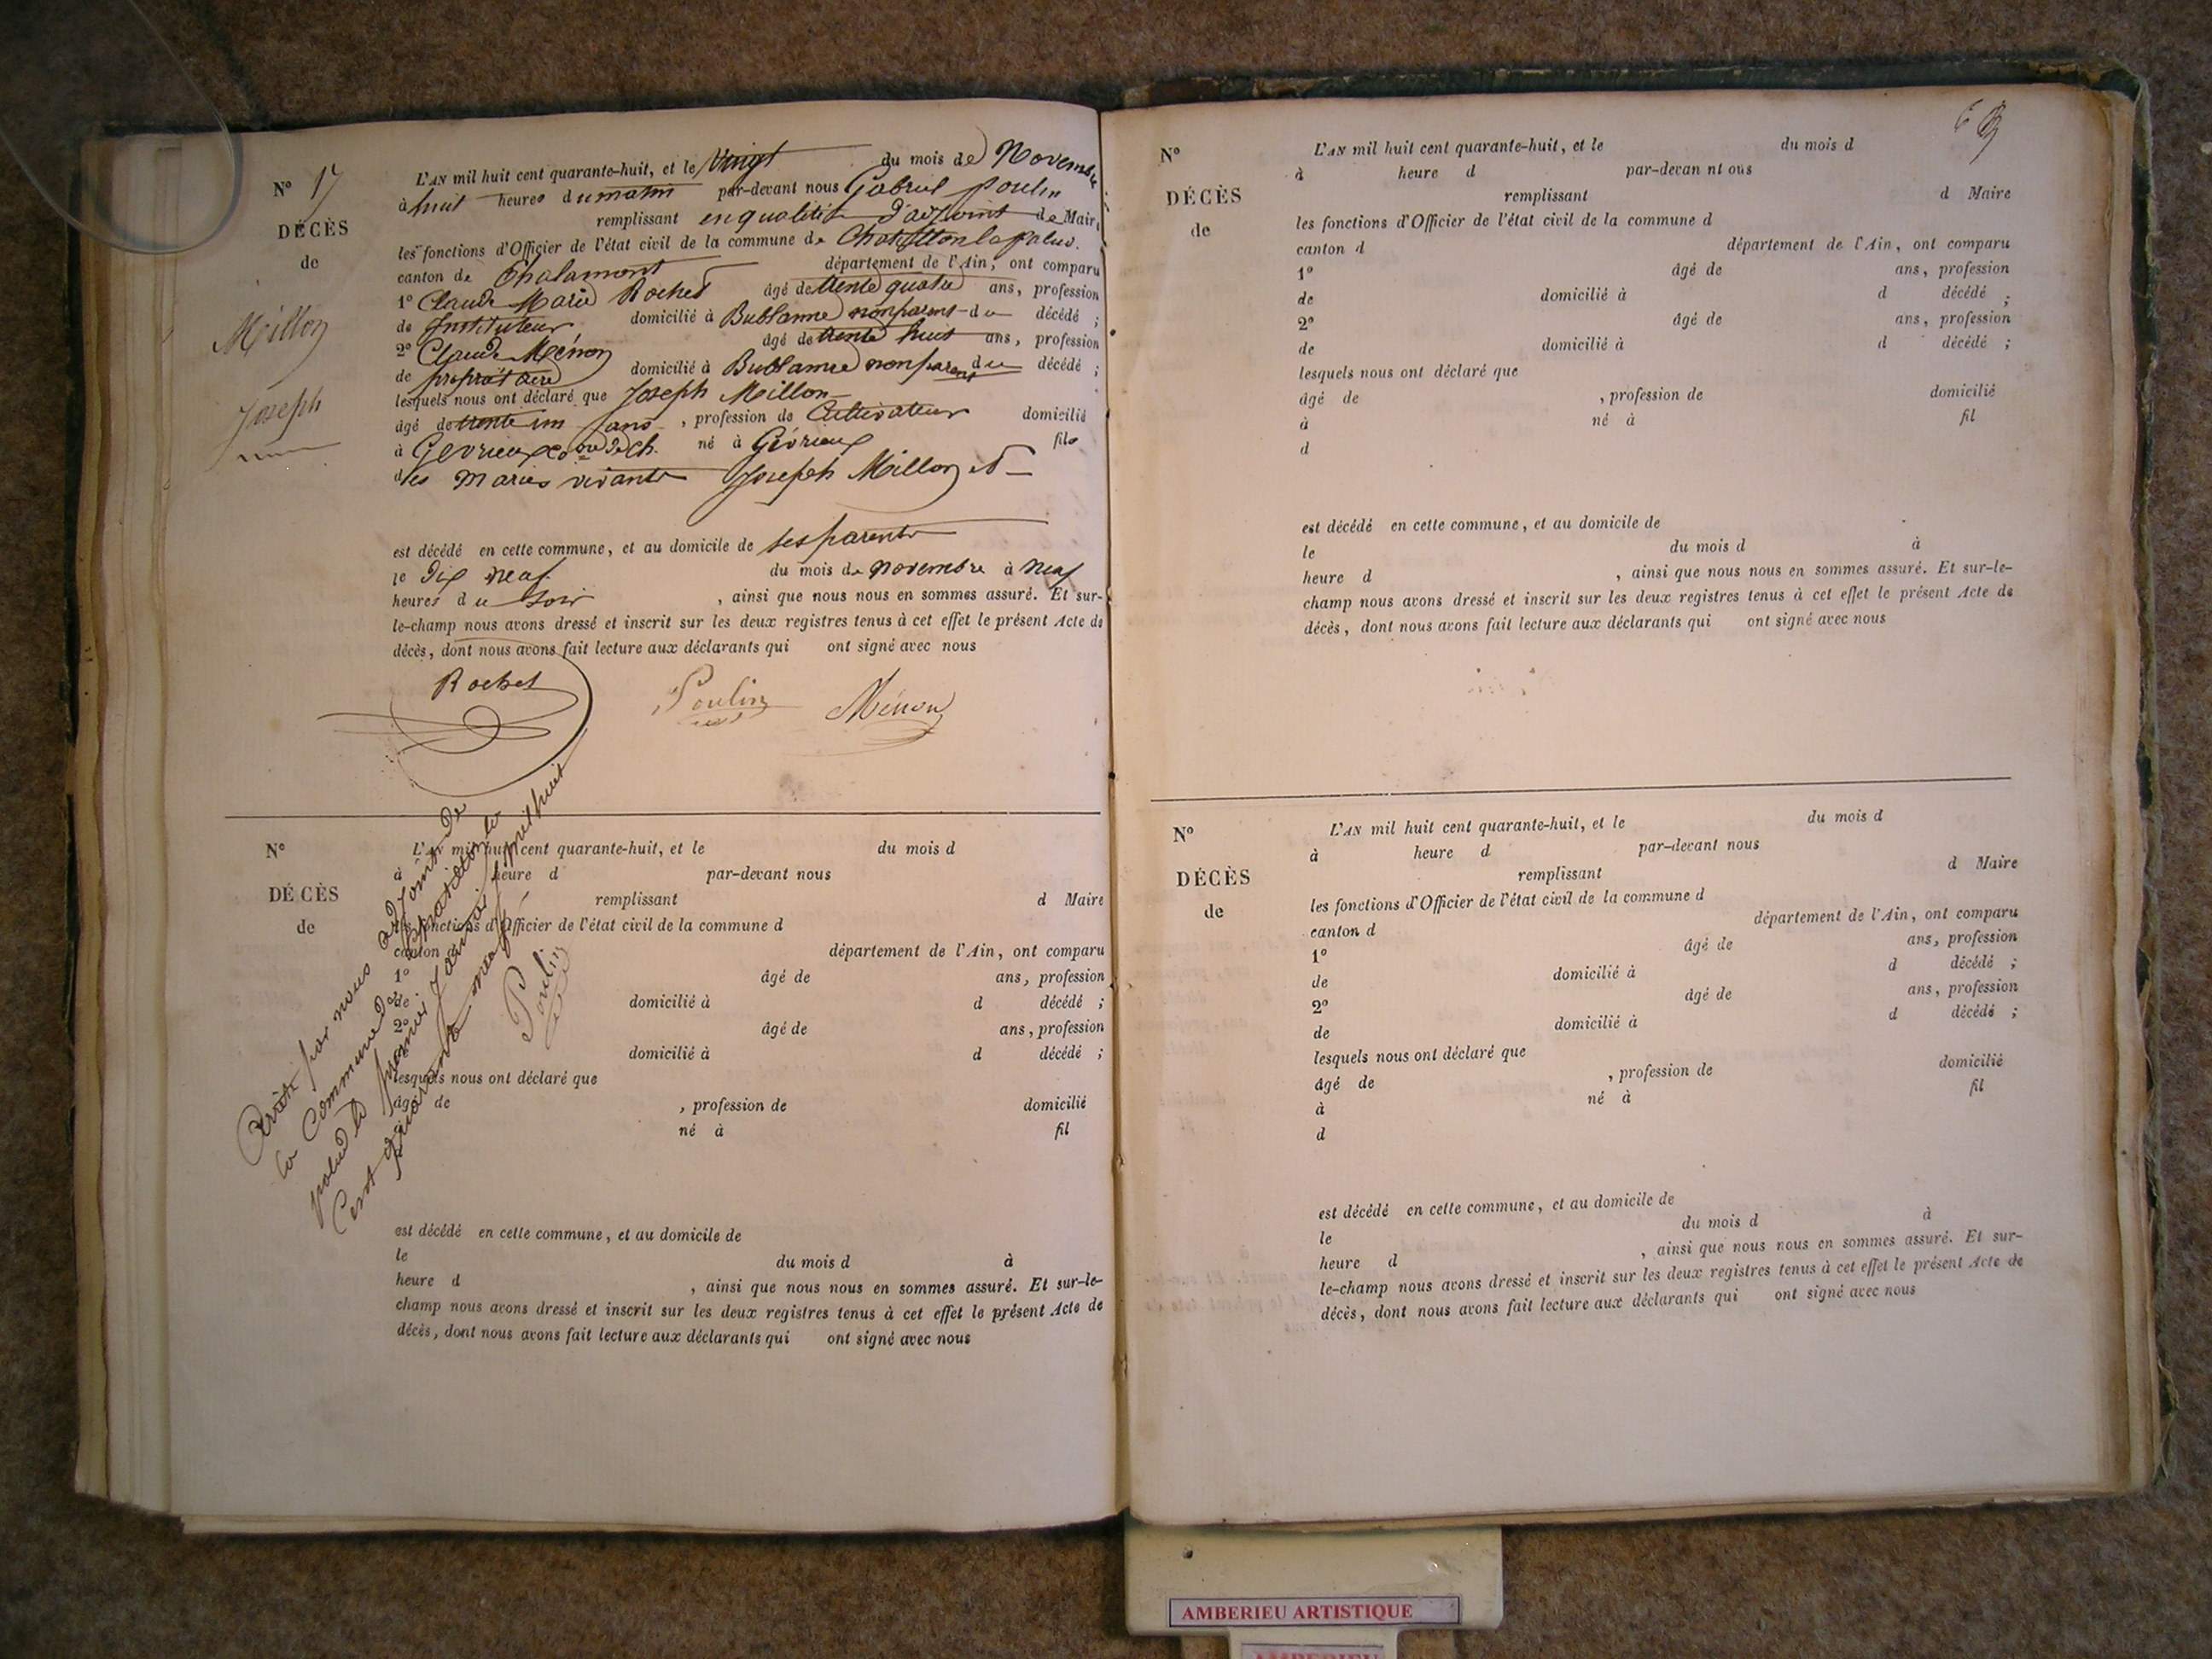 N° 17
DÉCÈS
de
Millon
Joseph
L'AN mil huit cent quarante-huit, et le Vingt du mois de Novembre
à huit heures du matin par-devant nous Gabriel poulin
remplissant en qualité d'adjoint de Maire
les fonctions d'Officier de l'état civil de la commune de Chatillon la palud.
canton de Chalamont département de l'Ain, ont comparu
1° Claude Marie Rochet âgé de trente quatre ans, profession
de Instituteur domicilié à Bublanne non parent du décédé ;
2° Claude Ménon âgé de trente huit ans, profession
de propriétaire domicilié à Bublanne non parent du décédé ;
lesquels nous ont déclaré que Joseph Millon
âgé de trente un ans , profession de Cultivateur domicilié
à Gevrieux né à Gévrieux fils
des mariés vivants Joseph Millon et
est décédé en cette commune, et au domicile de ses parents
le Dix neuf du mois de novembre à neuf
heures du soir , ainsi que nous nous en sommes assuré. Et sur-
le-champ nous avons dressé et inscrit sur les deux registres tenus à cet effet le présent Acte de
décès, dont nous avons fait lecture aux déclarants qui ont signé avec nous
Rochet Poulin Ménon
N°
DÉCÈS
de
L'AN mil huit cent quarante-huit, et le du mois d
à heure d par-devant nous
remplissant d Maire
les fonctions d'Officier de l'état civil de la commune d
canton d département de l'Ain, ont comparu
1° âgé de ans, profession
de domicilié à d décédé ;
2° âgé de ans, profession
de domicilié à d décédé ;
lesquels nous ont déclaré que
âgé de , profession de domicilié
à né à fil
d
est décédé en cette commune, et au domicile de
le du mois d à
heure d , ainsi que nous nous en sommes assuré. Et sur-le-
champ nous avons dressé et inscrit sur les deux registres tenus à cet effet le présent Acte de
décès, dont nous avons fait lecture aux déclarants qui ont signé avec nous
Arrêté par nous adjoint de
la Commune de Chatillon la
palud le premier janvier mil huit
Cent quarante neuf
Poulin
N°
DÉCÈS
de
L'AN mil huit cent quarante-huit, et le du mois d
à heure d par-devan nt ous
remplissant d Maire
les fonctions d'Officier de l'état civil de la commune d
canton d département de l'Ain, ont comparu
1° âgé de ans, profession
de domicilié à d décédé ;
2° âgé de ans, profession
de domicilié à d décédé ;
lesquels nous ont déclaré que
âgé de , profession de domicilié
à né à fil
d
est décédé en cette commune, et au domicile de
le du mois d à
heure d , ainsi que nous nous en sommes assuré. Et sur-le-
champ nous avons dressé et inscrit sur les deux registres tenus à cet effet le présent Acte de
décès, dont nous avons fait lecture aux déclarants qui ont signé avec nous
N°
DÉCÈS
de
L'AN mil huit cent quarante-huit, et le du mois d
à heure d par-devant nous
remplissant d Maire
les fonctions d'Officier de l'état civil de la commune d
canton d département de l'Ain, ont comparu
1° âgé de ans, profession
de domicilié à d décédé ;
2° âgé de ans, profession
de domicilié à d décédé ;
lesquels nous ont déclaré que
âgé de , profession de domicilié
à né à fil
d
est décédé en cette commune, et au domicile de
le du mois d à
heure d , ainsi que nous nous en sommes assuré. Et sur-
le-champ nous avons dressé et inscrit sur les deux registres tenus à cet effet le présent Acte de
décès, dont nous avons fait lecture aux déclarants qui ont signé avec nous
AMBERIEU ARTISTIQUE
AMBERIEU